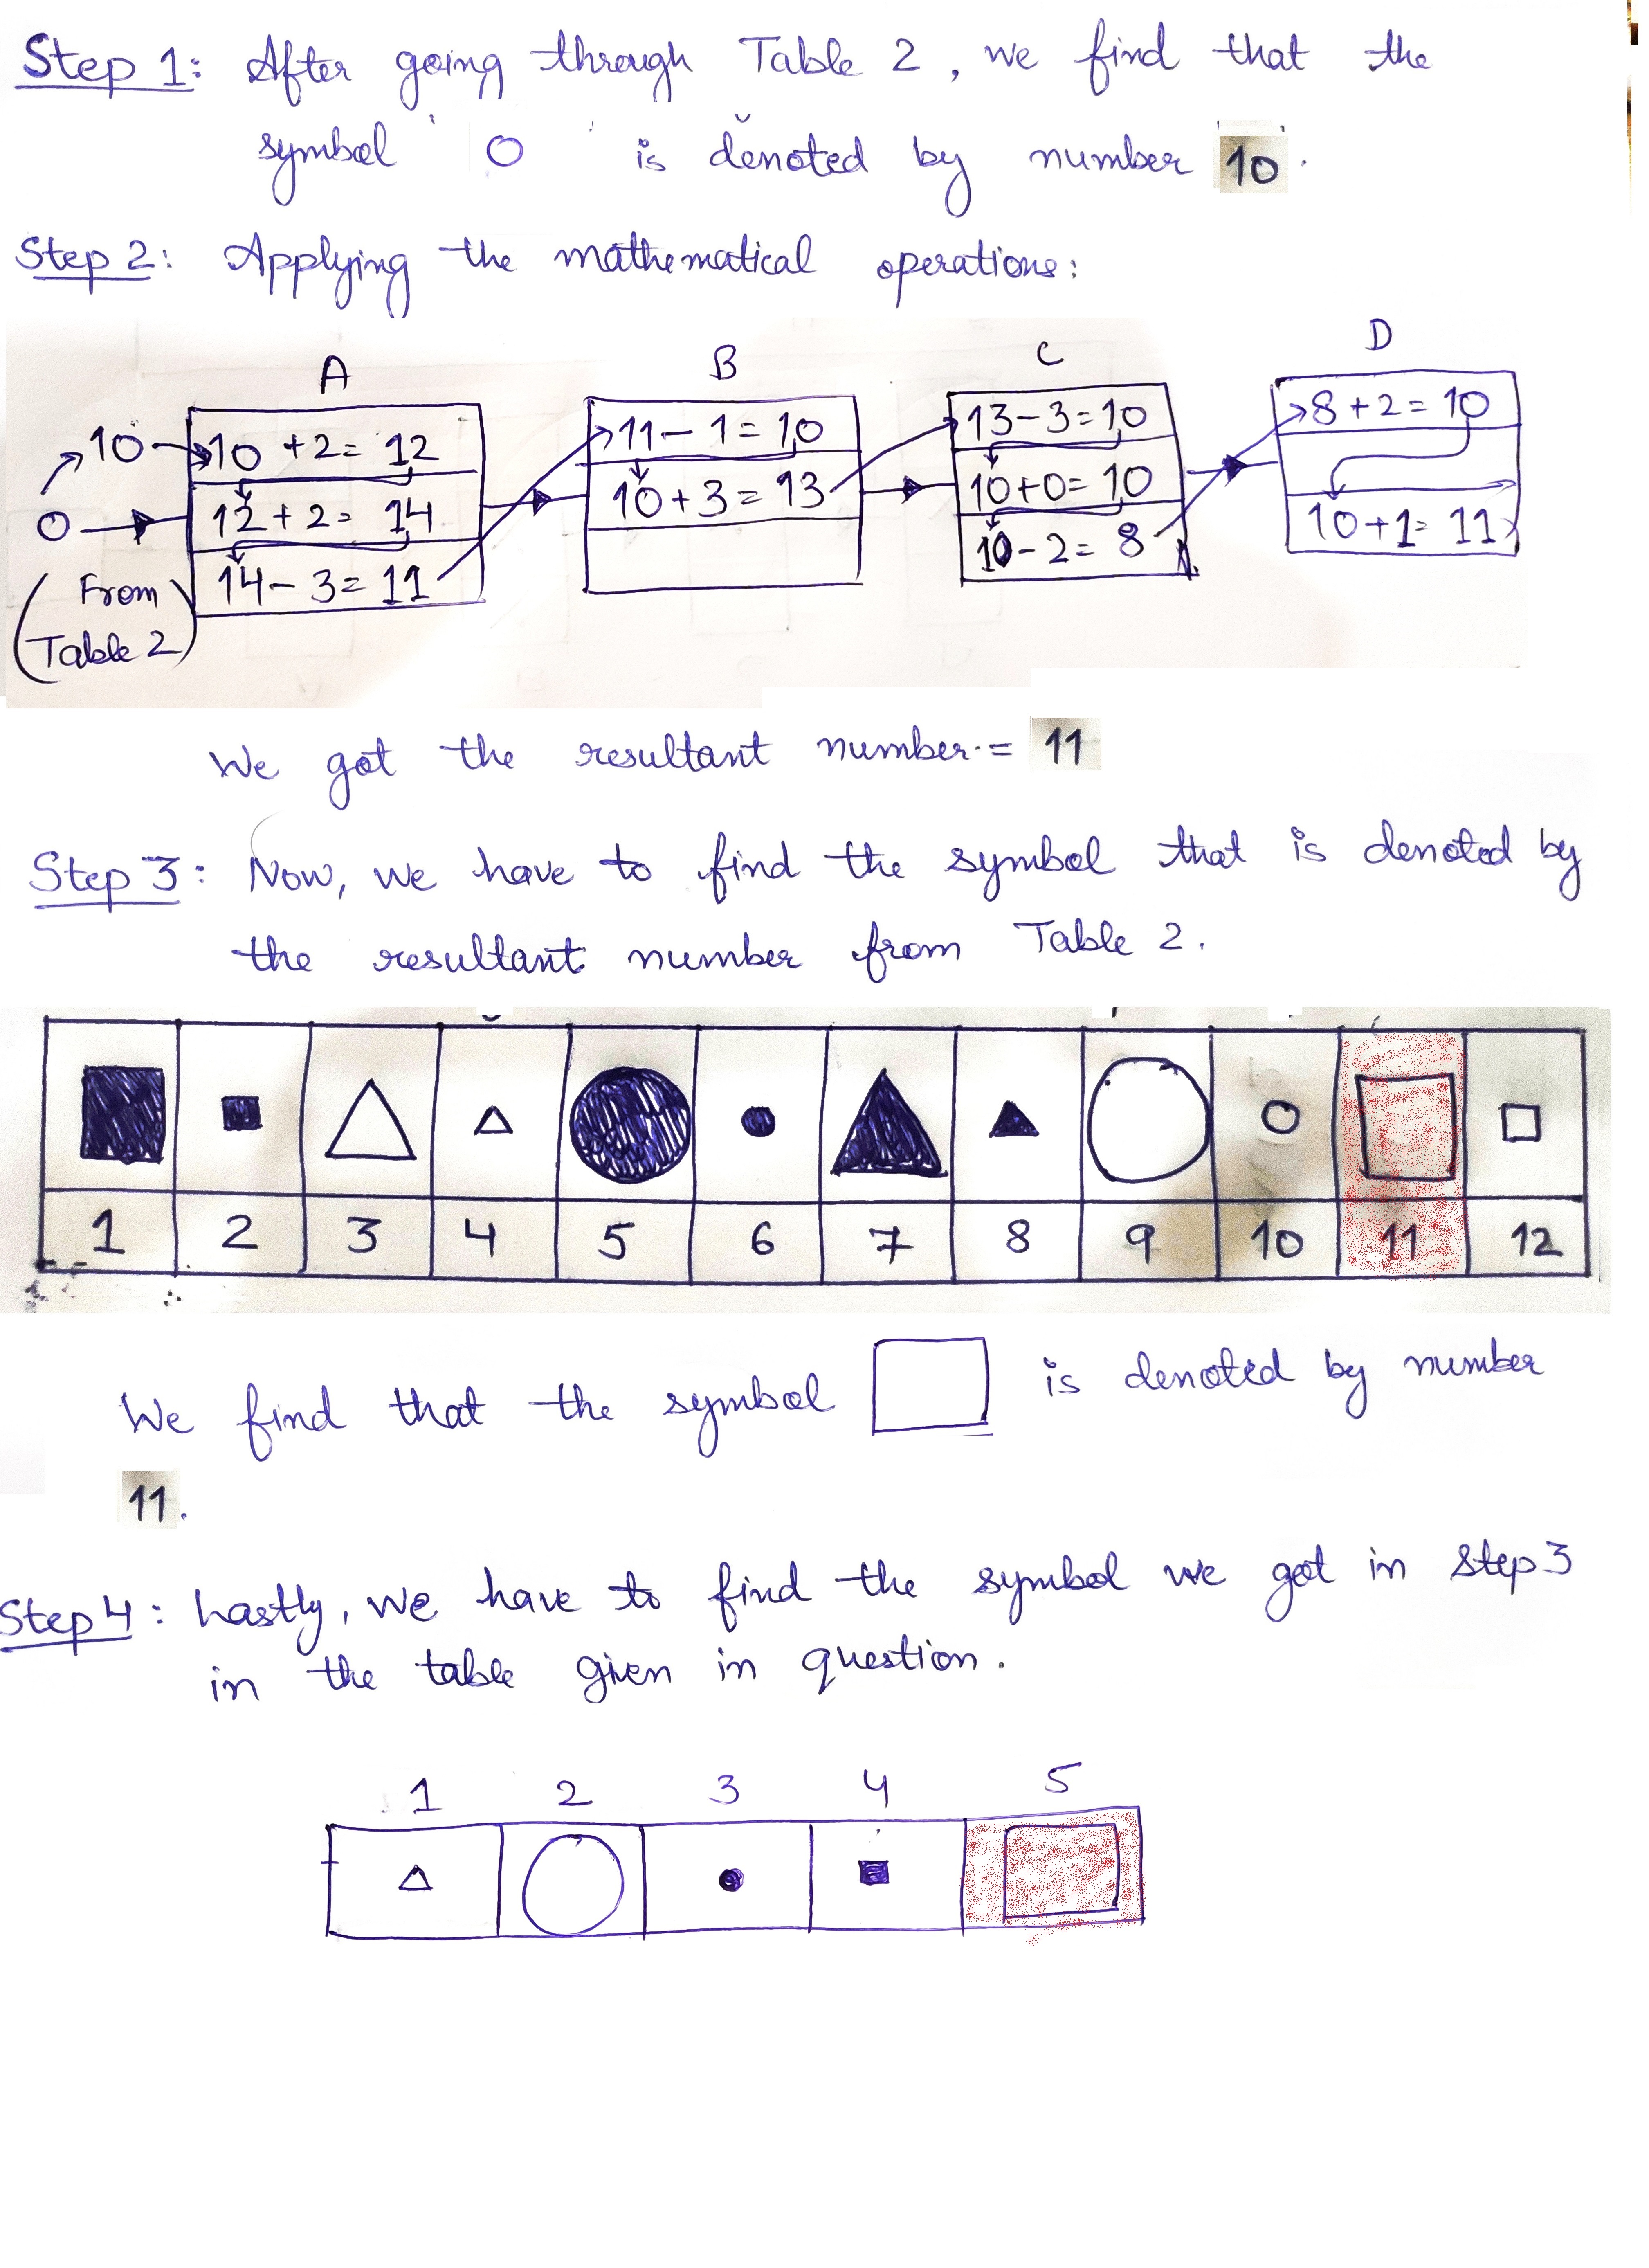 Step 1: After going through Table 2, we find that the
symbol ' O ' is denoted by number 10.
Step 2: Applying the mathematical operations:
A B C D
10 10 + 2 = 12 11 - 1 = 10 13 - 3 = 10 8 + 2 = 10
O 12 + 2 = 14 10 + 3 = 13 10 + 0 = 10
(From 14 - 3 = 11 10 - 2 = 8 10 + 1 = 11
Table 2)
We got the resultant number = 11
Step 3: Now, we have to find the symbol that is denoted by
the resultant number from Table 2.
1 2 3 4 5 6 7 8 9 10 11 12
We find that the symbol is denoted by number
11.
Step 4: Lastly, we have to find the symbol we got in step 3
in the table given in question.
1 2 3 4 5